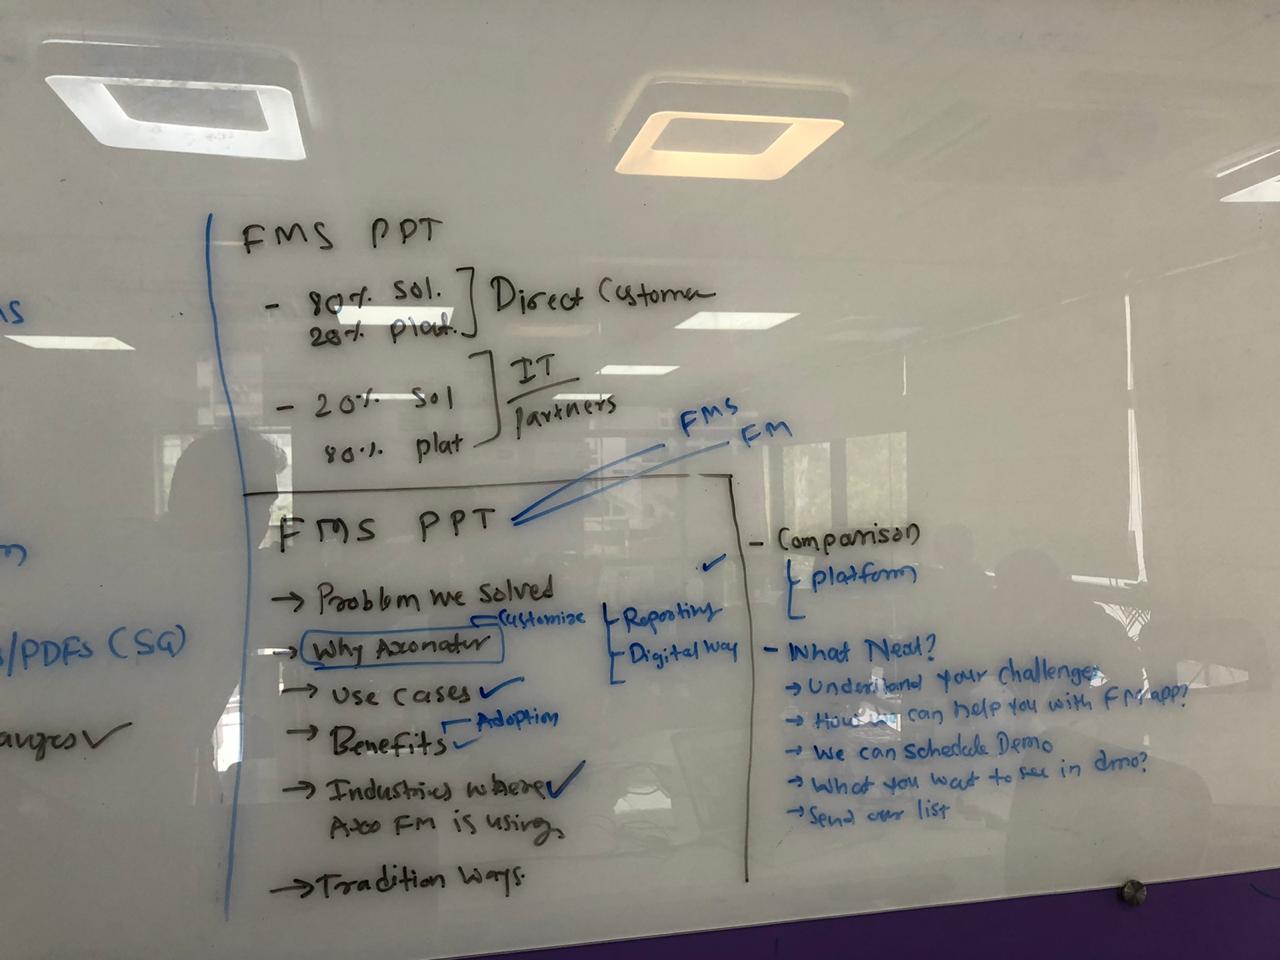 FMS PPT
- 80% sol.
20% plat.
Direct Customer
- 20% sol
80% plat
IT
Partners
FMS
FM
FMS PPT
→ Problem we solved
Customize
→ Why Axonator
Reporting
Digital Way
→ Use cases ✓
Adoption
→ Benefits ✓
→ Industries where ✓
Axo FM is using
→ Tradition Ways.
- Comparison
✓
Platform
- What Next?
→ Understand your challenges
→ How we can help you with FM app?
→ We can schedule Demo
→ What you want to see in dmo?
→ Send our list
s/PDFs (SG)
anges ✓